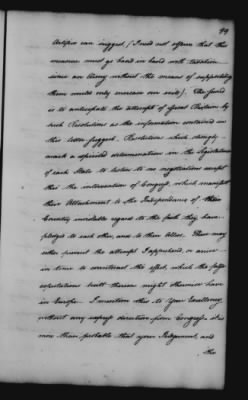 99
Artifice can suggest (I need not affirm that this
measure must go hand in hand with taxation
since an Army without the means of supporting
them would only increase our evils). The second
is to anticipate the attempt of Great Britain by
such Resolutions as the information contained in
this letter suggest. Resolutions which strongly
mark a spirited determination in the Legislature
of each State to listen to no negotiations except
thro the intervention of Congress, which manifest
their Attachment to the Independence of their
Country inviolable regard to the faith they have
pledged to each other, and to their Allies. These may
either prevent the attempt I apprehend, or arrive
in time to counteract the effect, which the false
expectations built thereon might otherwise have
in Europe. I mention this to Your Excellency
without any express direction from Congress, it is
more than probable that your Judgement, and
the